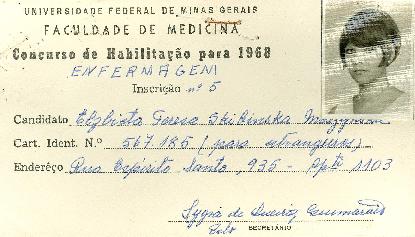 UNIVERSIDADE FEDERAL DE MINAS GERAIS
FACULDADE DE MEDICINA
Concurso de Habilitação para 1968
ENFERMAGEM
Inscrição nº 5
Candidato Elzbieta Teresa Skibinska
Cart. Ident. N.º 567.185 (para estrangeiros)
Enderêço Rua Espírito Santo, 935 - Aptº 1103
Lygia de Queiroz Guimarães
SECRETÁRIO